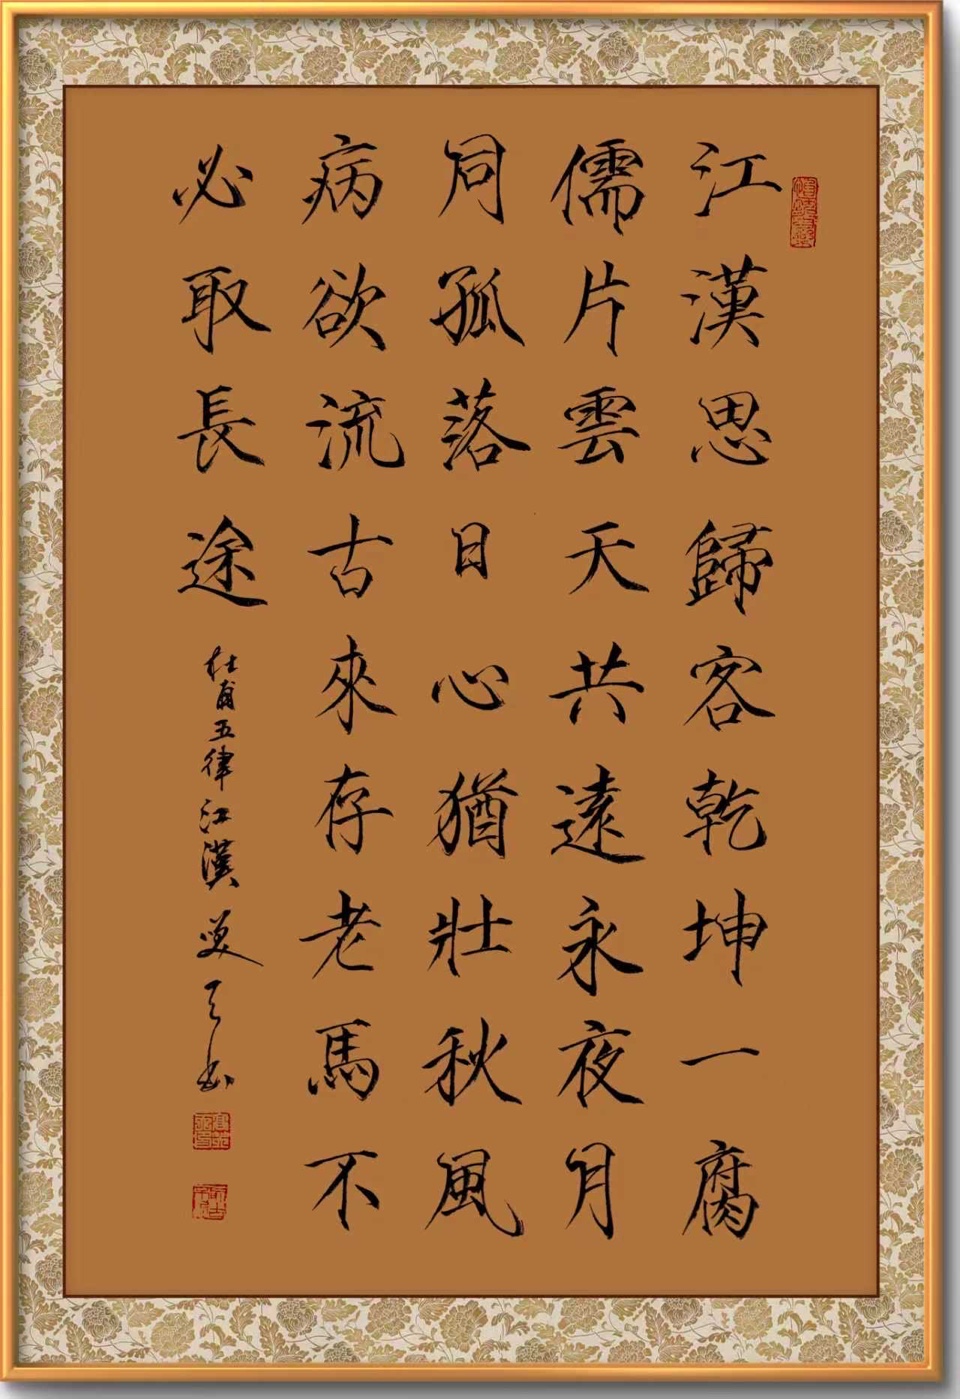 江漢思歸客乾坤一腐
儒片雲天共遠永夜月
同孤落日心猶壯秋風
病欲流古來存老馬不
必取長途
杜甫五律江漢